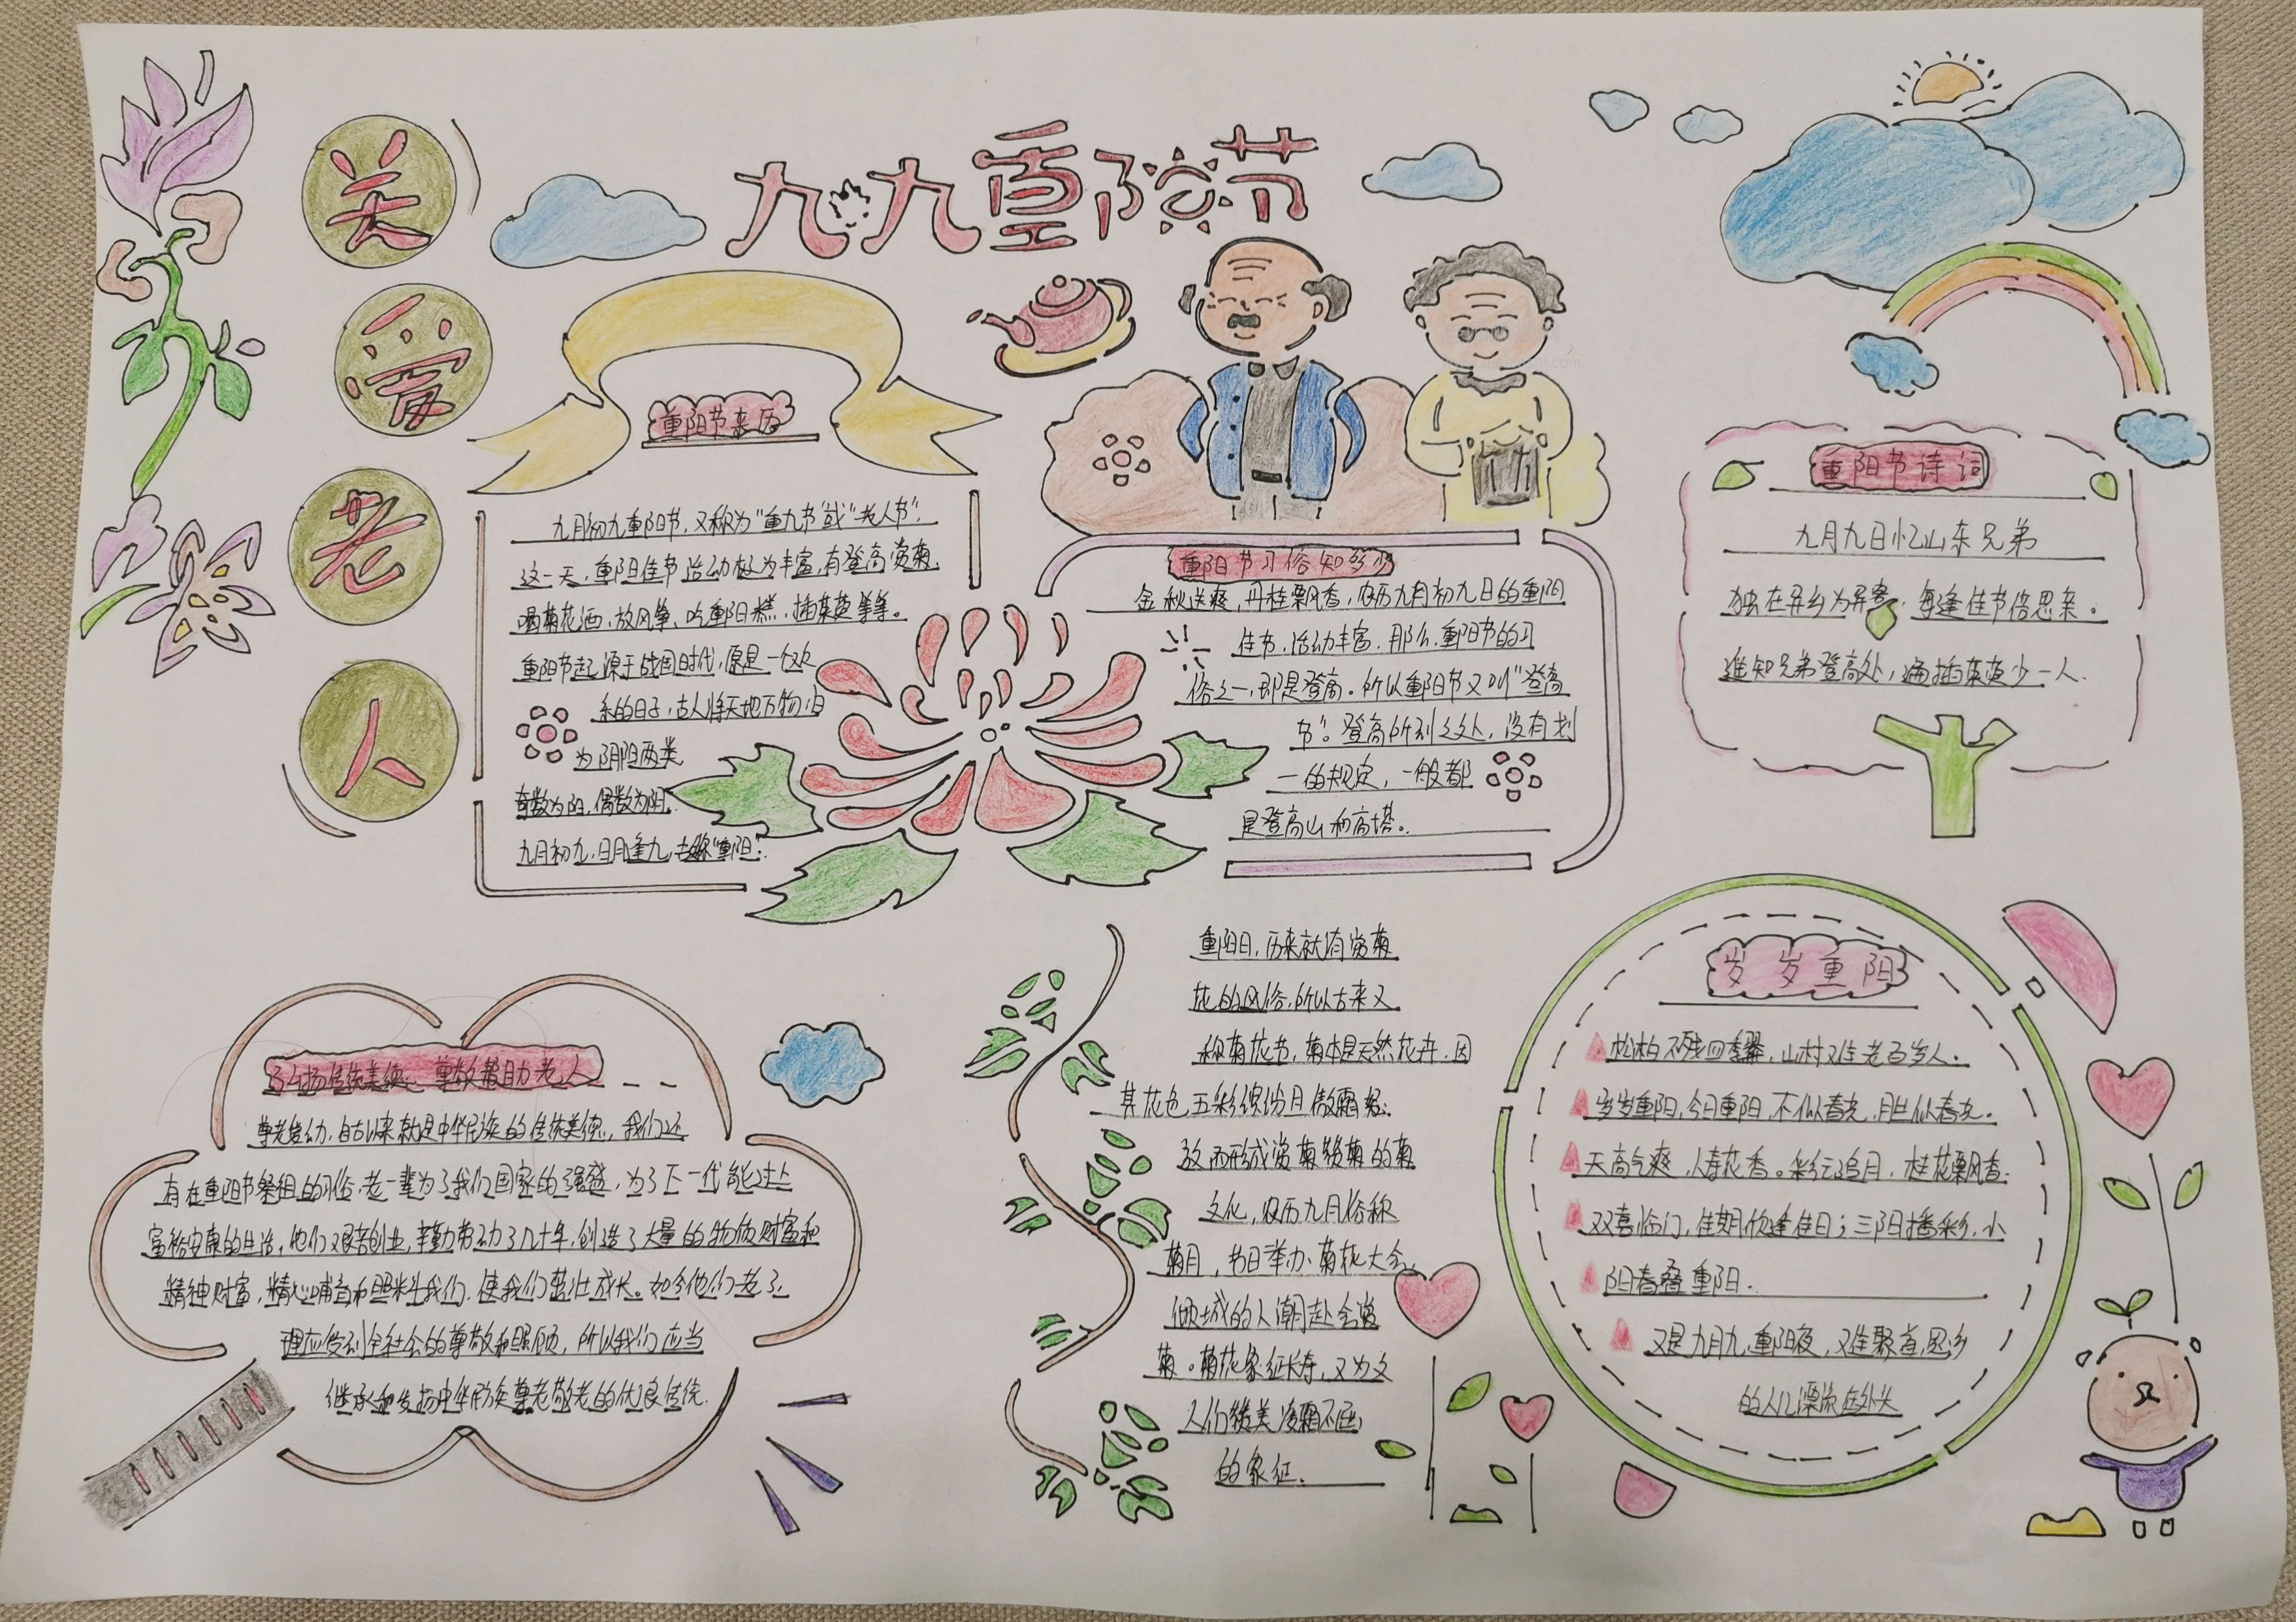 九九重阳节
关
爱
老
人
重阳节来历
九月初九重阳节,又称为"重九节"或"老人节".
这一天,重阳佳节活动极为丰富,有登高赏菊,
喝菊花酒,放风筝、吃重阳糕,插茱萸等等。
重阳节起源于战国时代,原是一个欢
乐的日子,古人将天地万物归
为阴阳两类
奇数为阳,偶数为阴.
九月初九,日月逢九,
重阳节习俗知多少
金秋送爽,丹桂飘香,农历九月初九日的重阳
佳节,活动丰富,那么,重阳节的习
俗之一,即是登高。所以重阳节又叫"登高
节".登高所到之处,没有划
一的规定,一般都
是登高山和高塔。
重阳节诗词
九月九日忆山东兄弟
独在异乡为异客,每逢佳节倍思亲。
遥知兄弟登高处,遍插茱萸少一人.
弘扬传统美德、尊敬帮助老人
尊老爱幼,自古以来就是中华民族的传统美德,我们还
有在重阳节祭祖的习俗,老一辈为了我们国家的强盛,为了下一代能过上
富裕安康的生活,他们艰苦创业,辛勤劳动了几十年,创造了大量的物质财富和
精神财富,精心哺育和照料我们,使我们茁壮成长。如今他们老了,
理应受到全社会的尊敬和照顾,所以我们应当
继承和发扬中华民族尊老敬老的优良传统.
重阳日,历来就有赏菊
花的风俗,所以古来又
称菊花节,菊本是天然花卉,因
其花色五彩缤纷且傲霜怒
放而形成赏菊赞菊的菊
文化,农历九月俗称
菊月,节日举办菊花大会,
倾城的人潮赴会赏
菊。菊花象征长寿,又为文
人们赞美凌霜不屈
的象征.
岁岁重阳
松柏不残四季翠,山村难老百岁人.
岁岁重阳,今日重阳,不似春光,胜似春光.
天高气爽,人寿花香。彩云追月,桂花飘香.
双喜临门,佳期欣逢佳日;三阳播彩,小
阳春叠重阳.
又是九月九,重阳夜,难聚首,思乡
的人儿漂流在外头